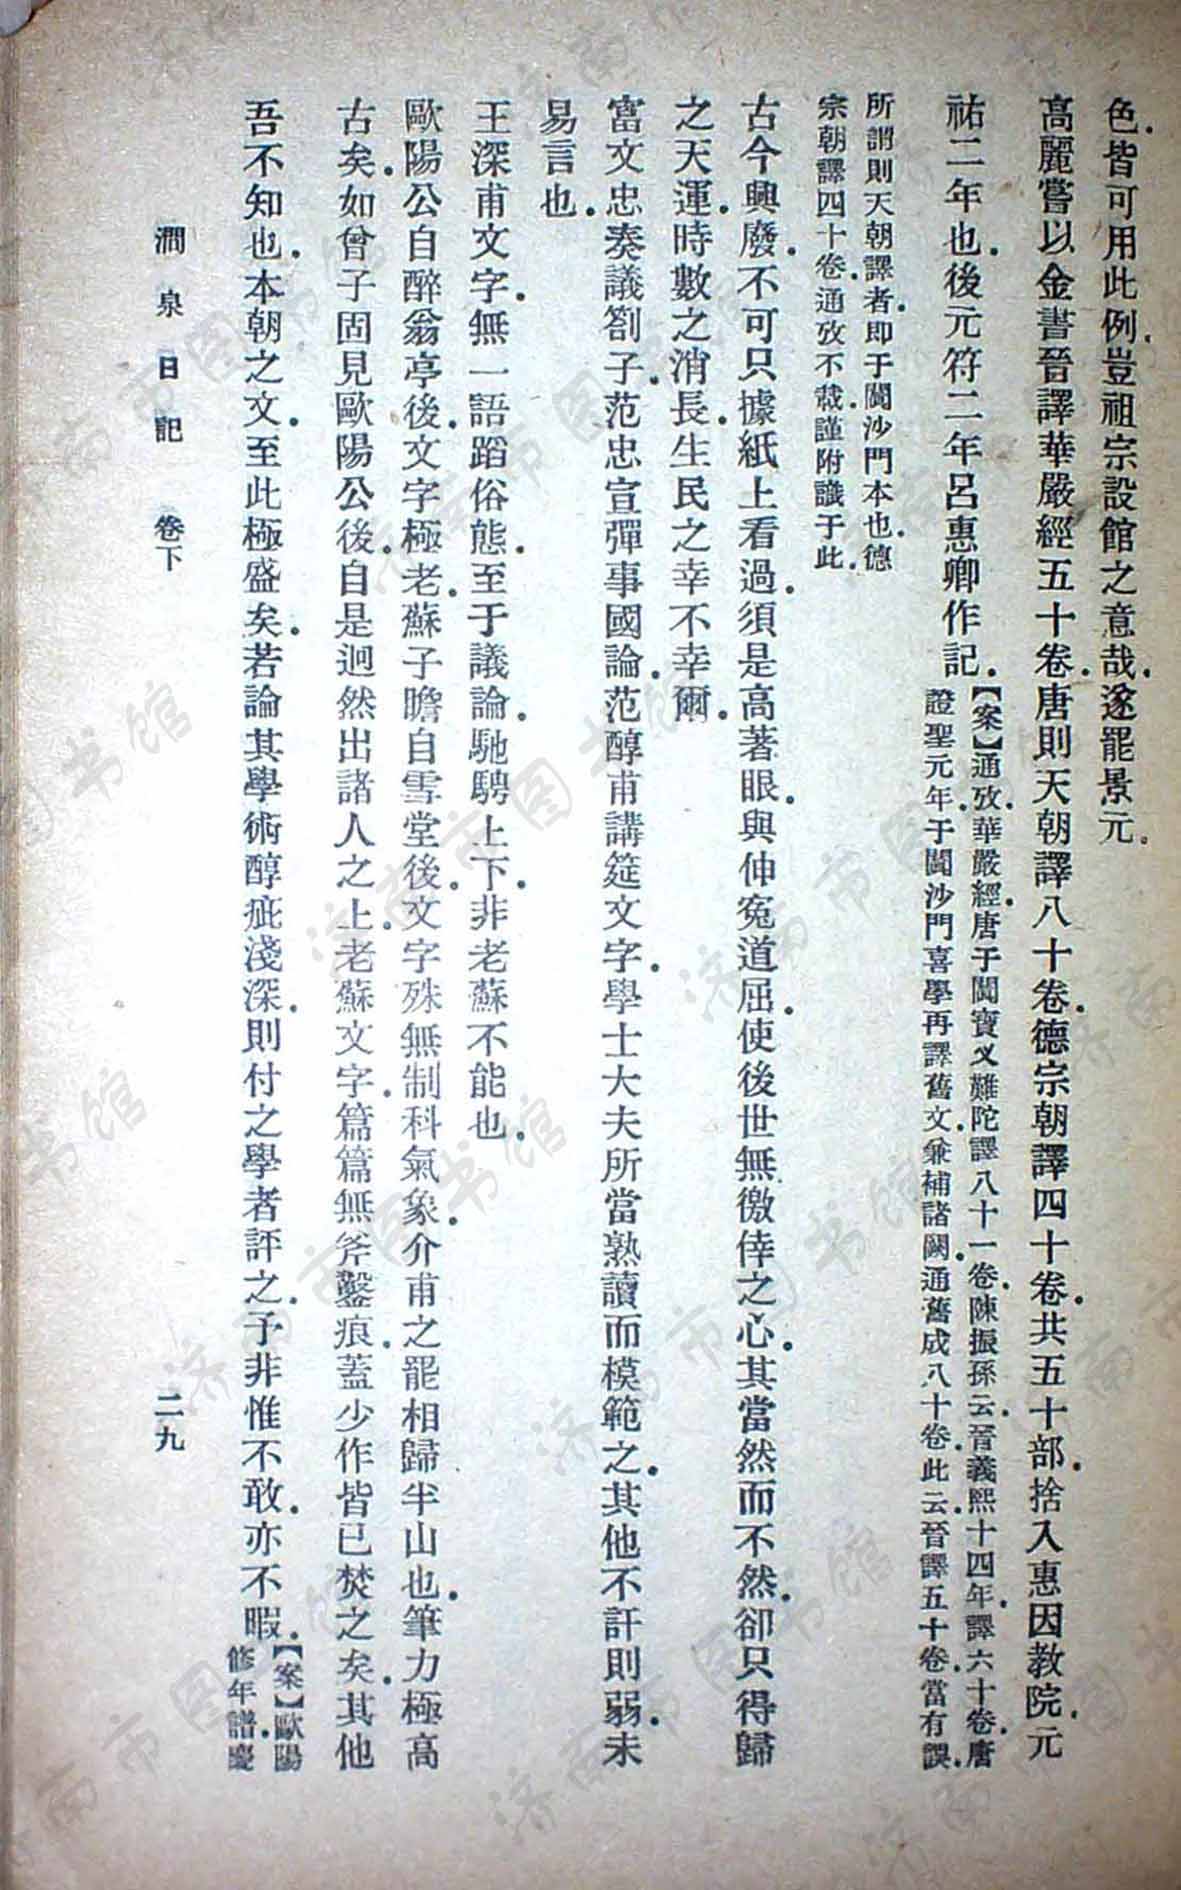 色。皆可用此例。豈祖宗設館之意哉。遂罷景元。
高麗嘗以金書晉譯華嚴經五十卷。唐則天朝譯八十卷。德宗朝譯四十卷。共五十部。捨入惠因教院。元
祐二年也。後元符二年呂惠卿作記。
【案】通攷。華嚴經。唐于闐寶叉難陀譯八十一卷。陳振孫云。晉義熙十四年。譯六十卷。唐
證聖元年。于闐沙門喜學再譯舊文。兼補諸闕。通舊成八十卷。此云。晉譯五十卷。當有誤。
所謂則天朝譯者。即于闐沙門本也。德
宗朝譯四十卷。通攷不載。謹附識于此。
古今興廢。不可只據紙上看過。須是高著眼。與伸寃道屈。使後世無徼倖之心。其當然而不然。卻只得歸
之天運。時數之消長。生民之幸不幸爾。
富文忠奏議劄子。范忠宣彈事國論。范醇甫講筵文字。學士大夫所當熟讀而模範之。其他不訐則弱。未
易言也。
王深甫文字。無一語蹈俗態。至于議論。馳騁上下。非老蘇不能也。
歐陽公自醉翁亭後。文字極老。蘇子瞻自雪堂後。文字殊無制科氣象。介甫之罷相歸半山也。筆力極高
古矣。如曾子固見歐陽公後。自是迥然出諸人之上。老蘇文字。篇篇無斧鑿痕。蓋少作皆已焚之矣。其他
吾不知也。本朝之文。至此極盛矣。若論其學術醇疵淺深。則付之學者評之。予非惟不敢。亦不暇。
【案】歐陽
修年譜。慶
澗泉日記 卷下 二九
济南市图书馆